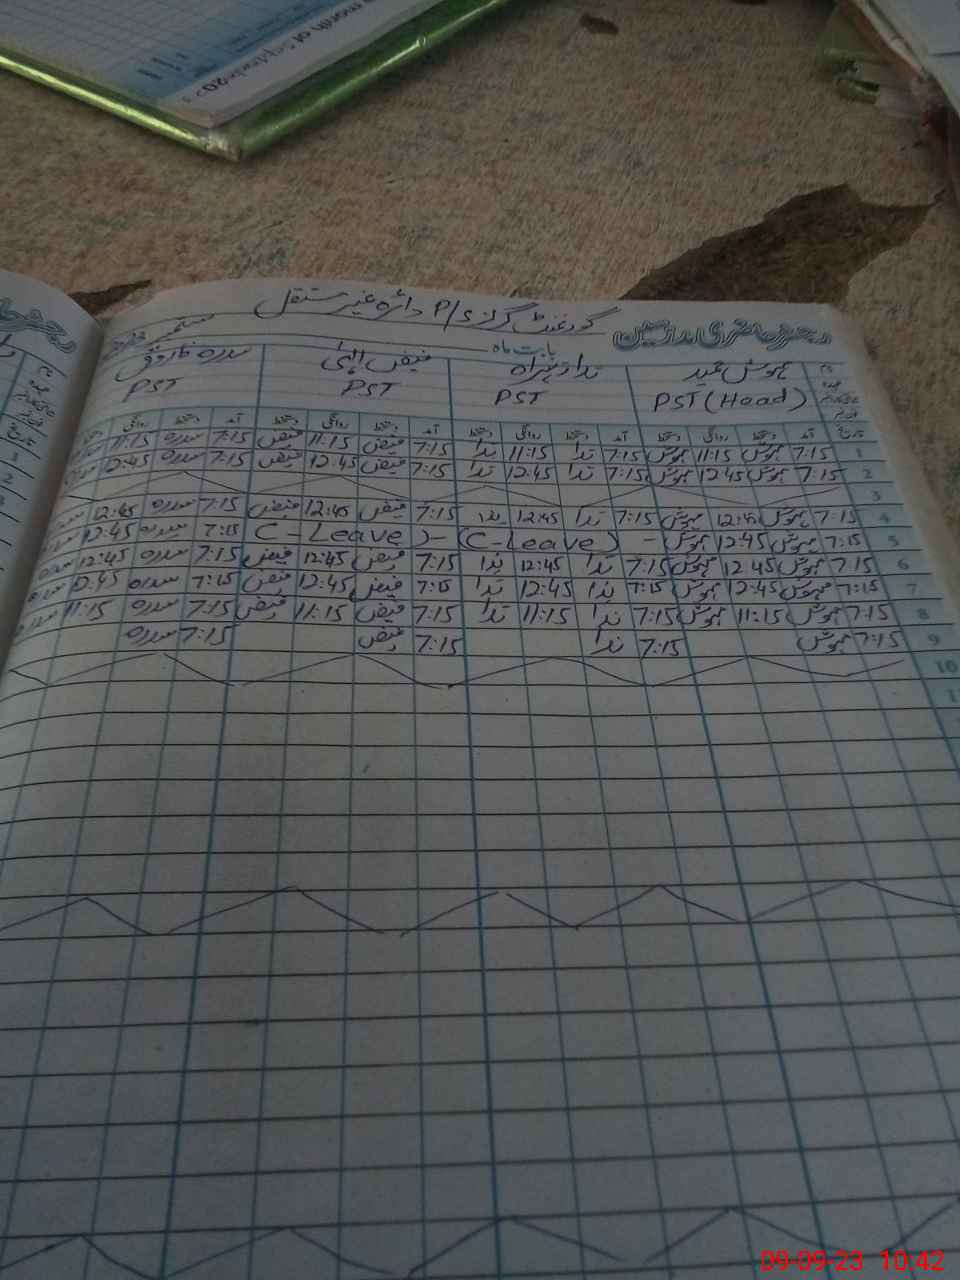 month of September 20
رجسٹر حاضری مدرسین
گورنمنٹ گرلز P/S دائرہ غیر مستقل
بابت ماہ ستمبر
مہوش عید ندا زہراہ فیض الہٰی سدرہ فاروق
PST (Head) PST PST PST
تاریخ آمد دستخط روانگی دستخط آمد دستخط روانگی دستخط آمد دستخط روانگی دستخط آمد دستخط روانگی
1 7:15 مہوش 11:15 مہوش 7:15 ندا 11:15 ندا 7:15 فیض 11:15 فیض 7:15 سدرہ 11:15
2 7:15 مہوش 12:45 مہوش 7:15 ندا 12:45 ندا 7:15 فیض 12:45 فیض 7:15 سدرہ 12:45
3
4 7:15 مہوش 12:45 مہوش 7:15 ندا 12:45 ندا 7:15 فیض 12:45 فیض 7:15 سدرہ 12:45
5 7:15 مہوش 12:45 مہوش - (C-Leave) - C-Leave 7:15 سدرہ 12:45
6 7:15 مہوش 12:45 مہوش 7:15 ندا 12:45 ندا 7:15 فیض 12:45 فیض 7:15 سدرہ 12:45 سدرہ
7 7:15 مہوش 12:45 مہوش 7:15 ندا 12:45 ندا 7:15 فیض 12:45 فیض 7:15 سدرہ 12:45
8 7:15 مہوش 11:15 مہوش 7:15 ندا 11:15 ندا 7:15 فیض 11:15 فیض 7:15 سدرہ 11:15
9 7:15 مہوش 7:15 ندا 7:15 فیض 7:15 سدرہ
10
11
09-09-23 10:42